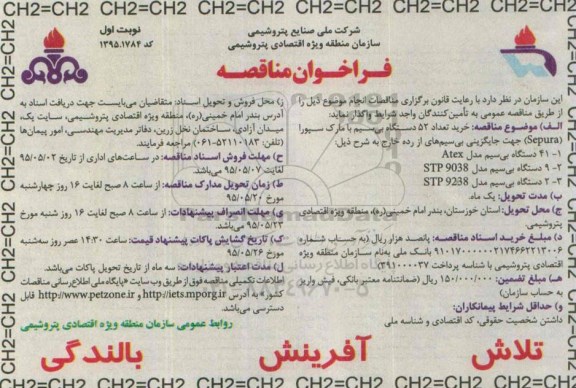 CH2=CH2 CH2=CH2 CH2=CH2 CH2=CH2 CH2=CH2 CH2=CH2
شرکت ملی صنایع پتروشیمی
سازمان منطقه ویژه اقتصادی پتروشیمی
نوبت اول
کد ۱۳۹۵.۱۷۸۴
فراخوان مناقصه
این سازمان در نظر دارد با رعایت قانون برگزاری مناقصات انجام موضوع ذیل را
از طریق مناقصه عمومی به تأمین‌کنندگان واجد شرایط واگذار نماید:
الف) موضوع مناقصه: خرید تعداد ۵۲ دستگاه بی‌سیم با مارک سپورا
(Sepura) جهت جایگزینی بی‌سیم‌های از رده خارج به شرح ذیل:
۱- ۴۱ دستگاه بی‌سیم مدل Atex
۲- ۹ دستگاه بی‌سیم مدل STP 9038
۳- ۲ دستگاه بی‌سیم مدل STP 9238
ب) مدت تحویل: یک ماه.
ج) محل تحویل: استان خوزستان، بندر امام خمینی(ره)، منطقه ویژه اقتصادی
پتروشیمی.
د) مبلغ خرید اسناد مناقصه: پانصد هزار ریال (به حساب شماره
۲۱۷۴۶۶۲۲۱۳۰۰۴ بانک ملی بنام سازمان منطقه ویژه
اقتصادی پتروشیمی با شناسه پرداخت
هـ) مبلغ تضمین: ۱۵۰/۰۰۰/۰۰۰ ریال (ضمانتنامه معتبر بانکی، فیش واریز
به حساب سازمان)
و) حداقل شرایط پیمانکاران:
داشتن شخصیت حقوقی، کد اقتصادی و شناسه ملی
ز) محل فروش و تحویل اسناد: متقاضیان می‌بایست جهت دریافت اسناد به
آدرس بندر امام خمینی(ره)، منطقه ویژه اقتصادی پتروشیمی، سایت یک،
میدان آزادی، ساختمان نخل زرین، دفاتر مدیریت مهندسی، امور پیمان‌ها
(تلفن: ۵۲۱۱۰۱۸۳-۰۶۱) مراجعه فرمایند.
ح) مهلت فروش اسناد مناقصه: در ساعت‌های اداری از تاریخ ۹۵/۰۵/۰۲
لغایت ۹۵/۰۵/۰۷ می‌باشد.
ط) زمان تحویل مدارک مناقصه: از ساعت ۸ صبح لغایت ۱۶ روز چهارشنبه
مورخ ۹۵/۰۵/۲۰
ی) مهلت انصراف پیشنهادات: از ساعت ۸ صبح لغایت ۱۶ روز شنبه مورخ
۹۵/۰۵/۲۳ می‌باشد.
ک) تاریخ گشایش پاکات پیشنهاد قیمت: ساعت ۱۴:۳۰ عصر روز سه‌شنبه
مورخ ۹۵/۰۵/۲۶
ل) مدت اعتبار پیشنهادات: سه ماه از تاریخ تحویل پاکات می‌باشد.
اطلاعات تکمیلی مناقصه فوق از طریق وب سایت «پایگاه ملی اطلاع‌رسانی مناقصات
کشور» به آدرس http://iets.mporg.ir و http://www.petzone.ir قابل
دسترسی می‌باشد.
روابط عمومی سازمان منطقه ویژه اقتصادی پتروشیمی
تلاش آفرینش بالندگی
CH2=CH2 CH2=CH2 CH2=CH2 CH2=CH2 CH2=CH2 CH2=CH2